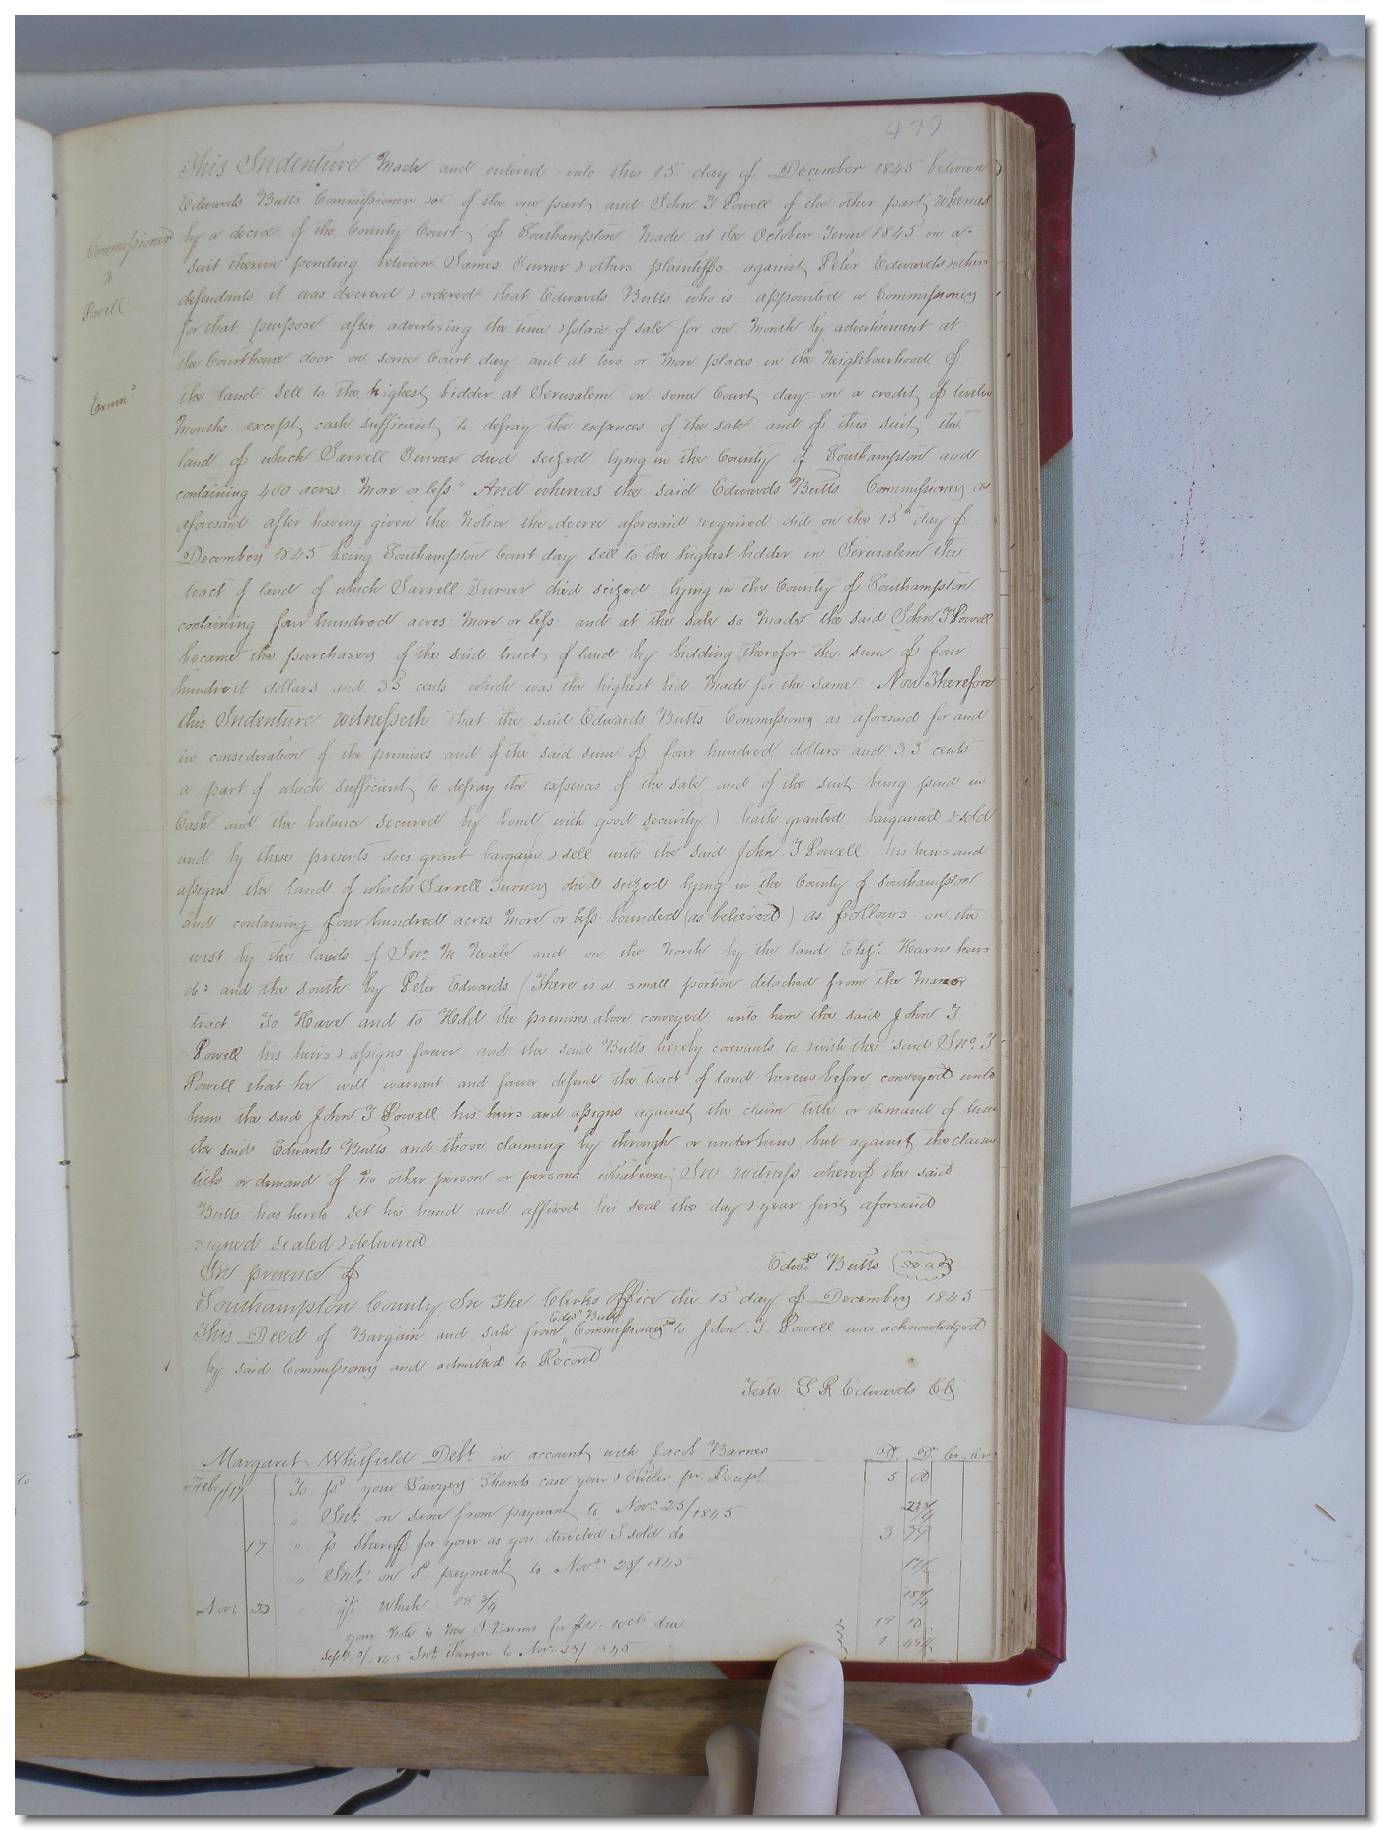 477
This Indenture Made and entered into this 15 day of December 1845 between
Edwards Butts Commissioner &c of the one part and John T Powell of the other part, Whereas
Commissioner
by a decree of the County Court of Southampton Made at the October Term 1845 in a
suit therein pending between James Turner & others plaintiffs against Peter Edwards & others
to
Powell
defendants it was decreed & ordered that Edwards Butts who is appointed a Commissioner
for that purpose after advertising the time & place of sale for one Month by advertisement at
the Courthouse door on some Court day and at two or More places in the Neighbourhood of
Examd
the land sell to the highest bidder at Jerusalem on some Court day on a credit of twelve
Months except cash sufficient to defray the expences of the sale and of this suit, the
land of which Jarrell Turner died seized lying in the County of Southampton and
containing 400 acres More or less" And whereas the said Edwards Butts Commissioner as
aforesaid after having given the Notice the decree aforesaid required did on the 15th day of
December 1845 being Southampton Court day sell to the highest bidder in Jerusalem the
tract of land of which Jarrell Turner died seized lying in the County of Southampton
containing four hundred acres More or less and at the sale so Made the said John T Powell
became the purchaser of the said tract of land by bidding therefor the sum of four
hundred dollars and 33 cents which was the highest bid Made for the same Now Therefore
this Indenture witnesseth that the said Edwards Butts Commissioner as aforesaid for and
in consideration of the premises and of the said sum of four hundred dollars and 33 cents
a part of which sufficient to defray the expences of the sale and of the suit being paid in
Cash and the balance secured by bond with good security) hath granted bargained & sold
and by these presents does grant bargain & sell unto the said John T Powell his heirs and
assigns the land of which Jarrell Turner died seized lying in the County of Southampton
and containing four hundred acres More or less bounded (as believed) as follows on the
west by the lands of Jno. M Neale and on the North by the land Eliz. Harris heirs
do and the South by Peter Edwards (There is a small portion detached from the Manor
tract To Have and to Hold the premises above conveyed unto him the said John T
Powell his heirs & assigns forever and the said Butts hereby covenants to & with the said Jno. T
Powell that he will warrant and forever defend the tract of land herein before conveyed unto
him the said John T Powell his heirs and assigns against the claim title or demand of him
the said Edwards Butts and those claiming by through or under him but against the claim
title or demand of no other person or persons whatever In witness whereof the said
Butts has hereto set his hand and affixed his seal the day & year first aforesaid
signed sealed & delivered
In presence of
Edwds Butts (Seal)
Southampton County In The Clerks Office the 15 day of December 1845
Edwds Butts
This Deed of Bargain and sale from Commissioner &c to John T Powell was acknowledged
by said Commissioner and admitted to Record
Teste L R Edwards Clk
Margaret Whitfield Debt. in account with Jacob Barnes
D. D. Cr. Cr.
Feby 17 To pd your Lawyer Shands case your & Butler pr. Receipt 5 00
" Int. on same from payment to Novr 23/1845
17 " pd Sheriff for your as you directed I sold do 3 39
" Int. on S payment to Novr 23/1845
Novr 23
your Note
Int. thereon to Novr 23/1845